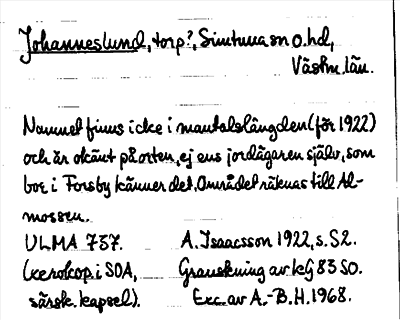 Johanneslund, torp?, Simtuna sn o. hd,
Västm. län.
Namnet finns icke i mantalslängden (för 1922)
och är okänt på orten, ej ens jordägaren själv, som
bor i Forsby känner det. Området räknas till Al-
mossen.
ULMA 737. A. Isaacsson 1922, s. 52.
(xerokop. i SOA, Granskning av kG 83 SO.
särsk. kapsel). Exc. av A.-B.H. 1968.